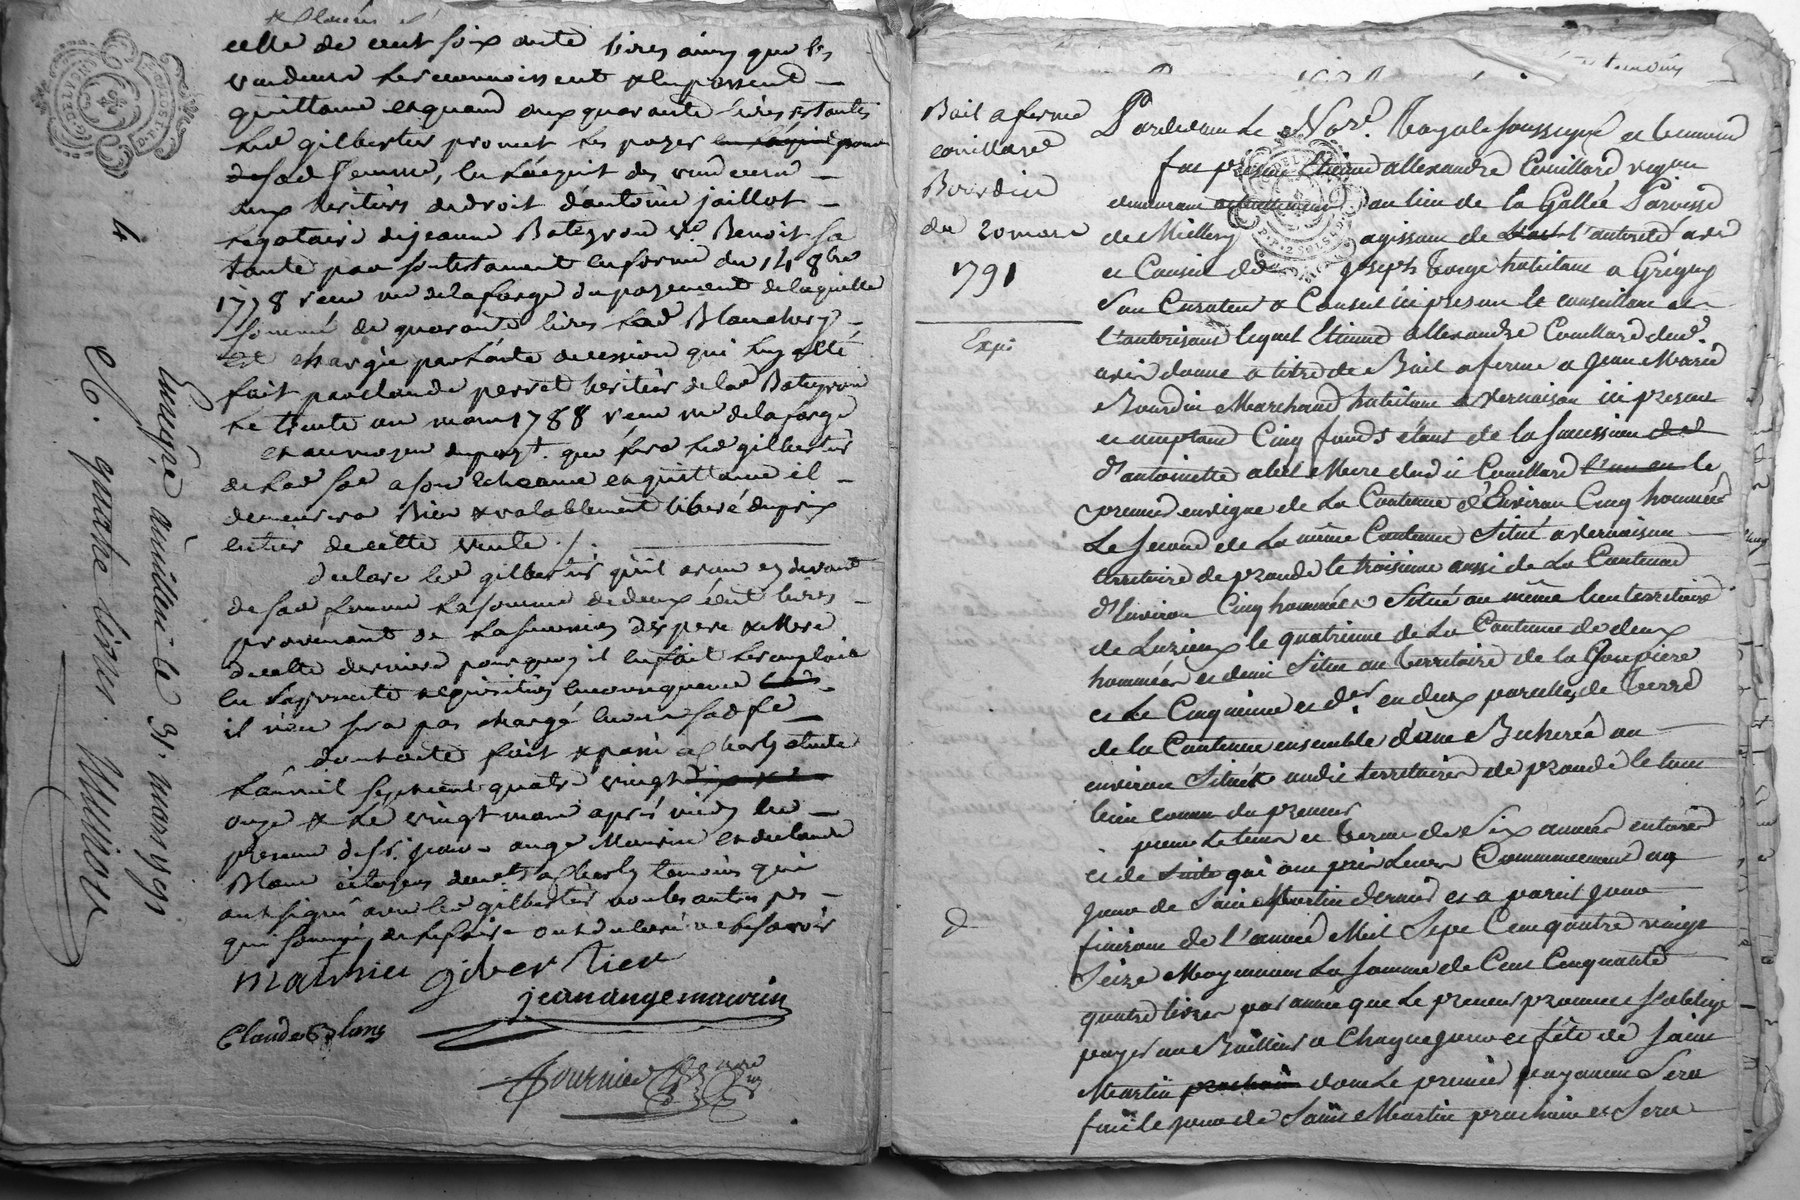 celle de cent soixante livres ainsi que les
vendeurs le reconnoissent & en passent
quittance et quand aux quarante livres restantes
led gilbertier promet les payer en l'acquit pour
de sad femme, en l'acquit des vendeurs
aux heritiers de droit d'antoine jaillot
legataire de jeanne Bategron ve Benoit sa
tante par son testament en forme du 14 8bre
1778 reçu me delaforge du payement de laquelle
somme de quarante livres led Blanchery
est chargé par l'acte de cession qui luy a été
fait par claude perret heritier de lad Bategron
le trente un mars 1788 reçu me delaforge
et au moyen du payt. que fera led gilbertier
de lad sôe a son echeance en quittance il
demeurera Bien & valablement libéré du prix
entier de cette vente ./.
declare led gilbertier qu'il a reçu cy devant
de sad femme la somme de deux cent livres
provenant de la succession des pere & mere
de cette derniere pourquoy il en fait l'emploi
en la presente acquisition en consequence
il n'en sera pas chargé envers sad fe
dont acte fait & passé a Charly etude
l'an mil sept cent quatre vingt dix & 
onze & le vingt mars après midy en
presence de sr. jean ange Maurin et de claude
Blanc citoyens dem.ts a Charly temoins qui
ont signé avec led gilbertier non les autres pes
qui sommés de le faire ont declaré ne le savoir
mathieu gilbertier
jean ange maurin
Claude Blanc
fournier
4
Enregtré à millery le 31. mars 1791
R. quatre livres.
Bail a ferme
couillard
Bourdin
du 20 mars
1791
Expé
Pardevant Le Nore. Royale soussigné et temoins
fut présent Etienne allexandre Couillard vigon
demeurant actuellement au lieu de la Gallée Paroisse
de Millery agissant de L'aut l'autorité avis
et Conseil de Sr joseph Verge habitant a Grigny
son Curateur & Conseil ici present le conseillant et
l'autorisant lequel Etienne allexandre Couillard dud.
avis donne a titre de Bail a ferme a Jean Marie
Bourdin Marchand habitant a vernaison ici present
et acceptant Cinq fonds étant de la succession de
d'antoinette abel Mere dudit Couillard l'un en le
premier en vigne de La Contenue d'Environ Cinq hommées
Le second de La même Contenue Situé a vernaison
territoire de prande le troisieme aussi de La Contenue
d'Environ Cinq hommées Situé au même lieu territoire
de Luzieux le quatrieme de La Contenue de deux
hommées et demi Situé au territoire de la Goupiere
et Le Cinquieme et der. en deux parcelles de terre
de la Contenue ensemble d'une Bicherée ou
environ Situées audit territoire de prande le tout
bien connu du preneur
pour le tems et terme de Six années entieres
et de Suite qui ont pris Leur Commencement au
jour de Saint Martin dernier et a pareil jour
finiront de l'année Mil Sept Cent quatre vingt
Seize Moyennant La Somme de Cent Cinquante
quatre livres par année que Le preneur promet s'oblige
payer au Bailleur a Chaque jour et fête de Saint
Martin prochain dont Le premier payement Sera
fait le jour de Saint Martin prochain et Sera